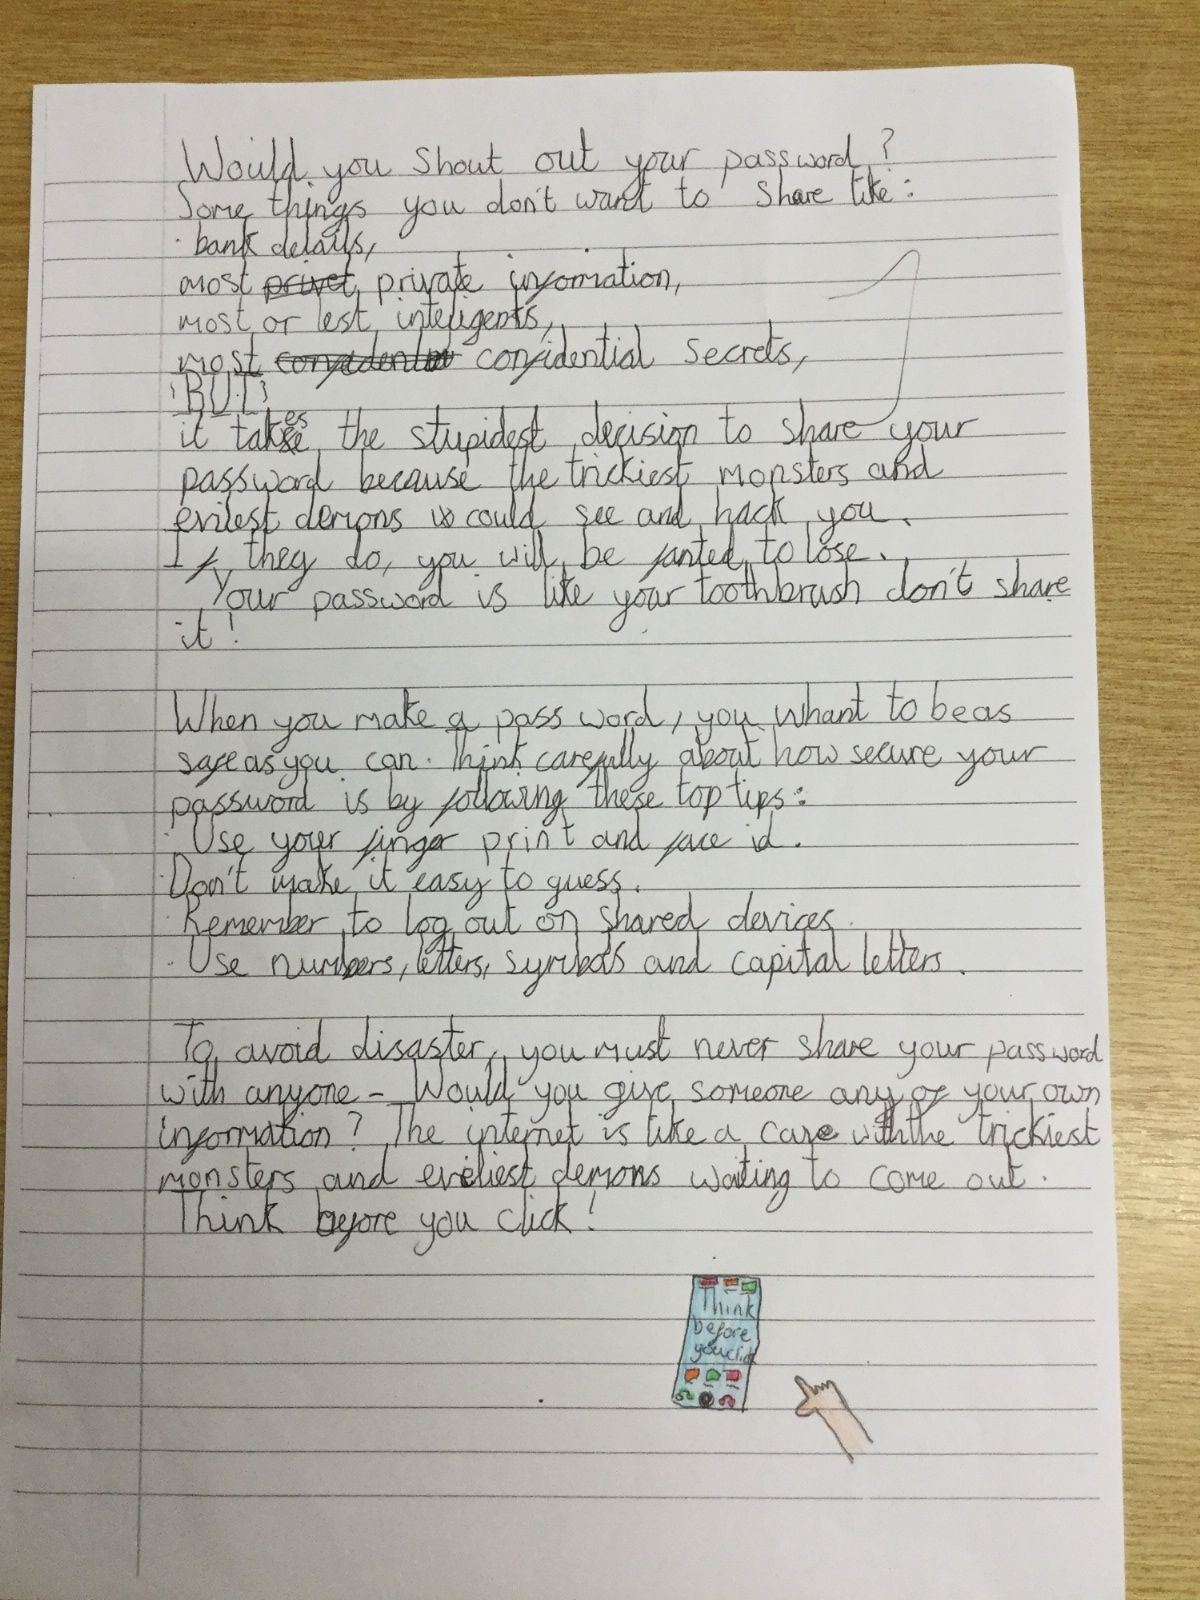 Would you shout out your password?
Some things you don't want to share like:
· bank details,
most privet private information,
most or lest inteligents,
most confidential secrets,
'BUT'
it takes the stupidest decision to share your
password because the trickiest monsters and
evilest demons could see and hack you.
If they do, you will be to lose.
Your password is like your toothbrush don't share
it!
When you make a pass word, you whant to be as
safe as you can. Think carefully about how secure your
password is by following these top tips:
· Use your finger print and face id.
· Don't make it easy to guess.
· Remember to log out on shared devices.
· Use numbers, letters, symbols and capital letters.
To avoid disaster, you must never share your password
with anyone - Would you give someone any of your own
information? The internet is like a cave with the trickiest
monsters and eveliest demons waiting to come out.
Think before you click!
Think
before
you click